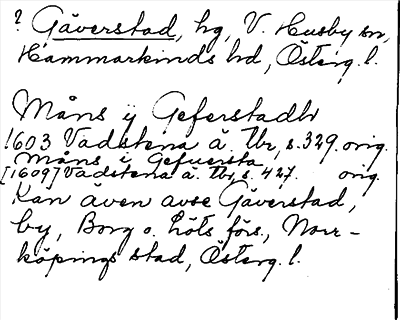 ? Gäverstad, hg, V. Husby sn,
Hammarkinds hd, Österg. l.
Måns ij Geferstadh
1603 Vadstena ä. Tbr, s. 329. orig.
Måns i Gefuersta
[1609] Vadstena ä. Tbr, s. 427. orig.
Kan även avse Gäverstad,
by, Borg o. Löts förs., Norr-
köpings stad, Österg. l.